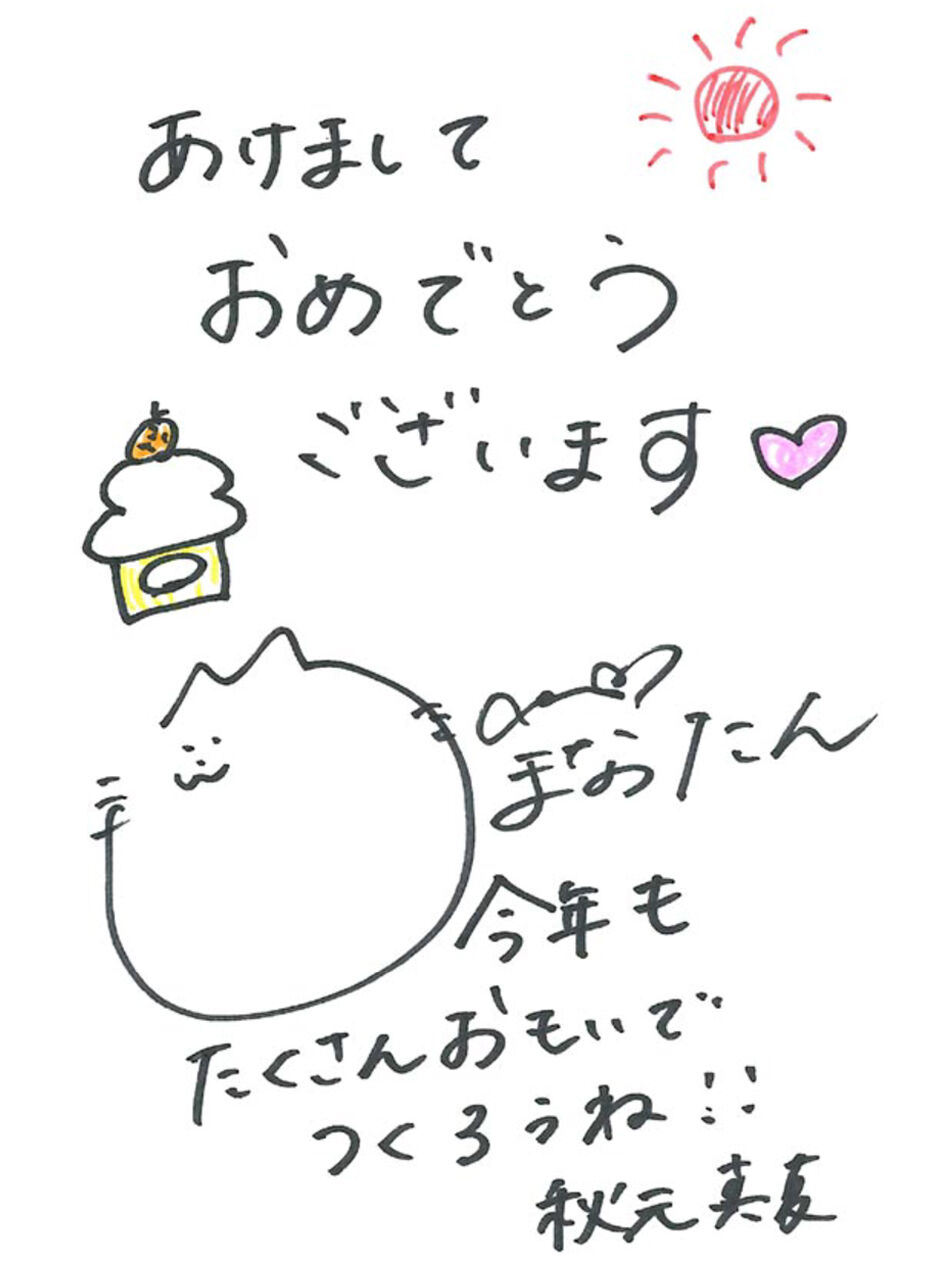 あけまして
おめでとう
ございます
まおたん
今年も
たくさんおもいで
つくろうね!!
秋元真夏